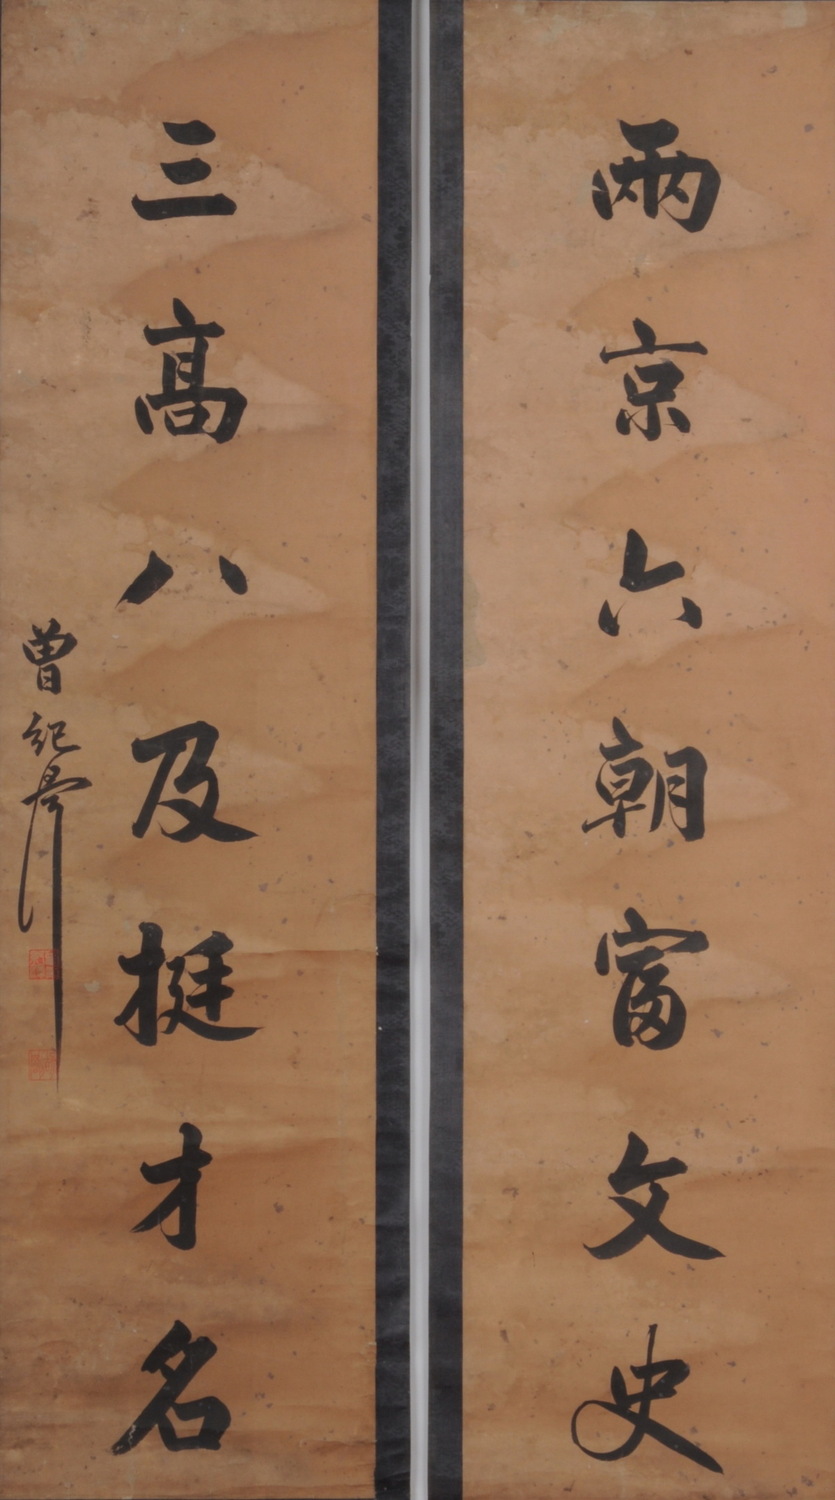 兩京六朝富文史
三高八及挺才名
曾紀